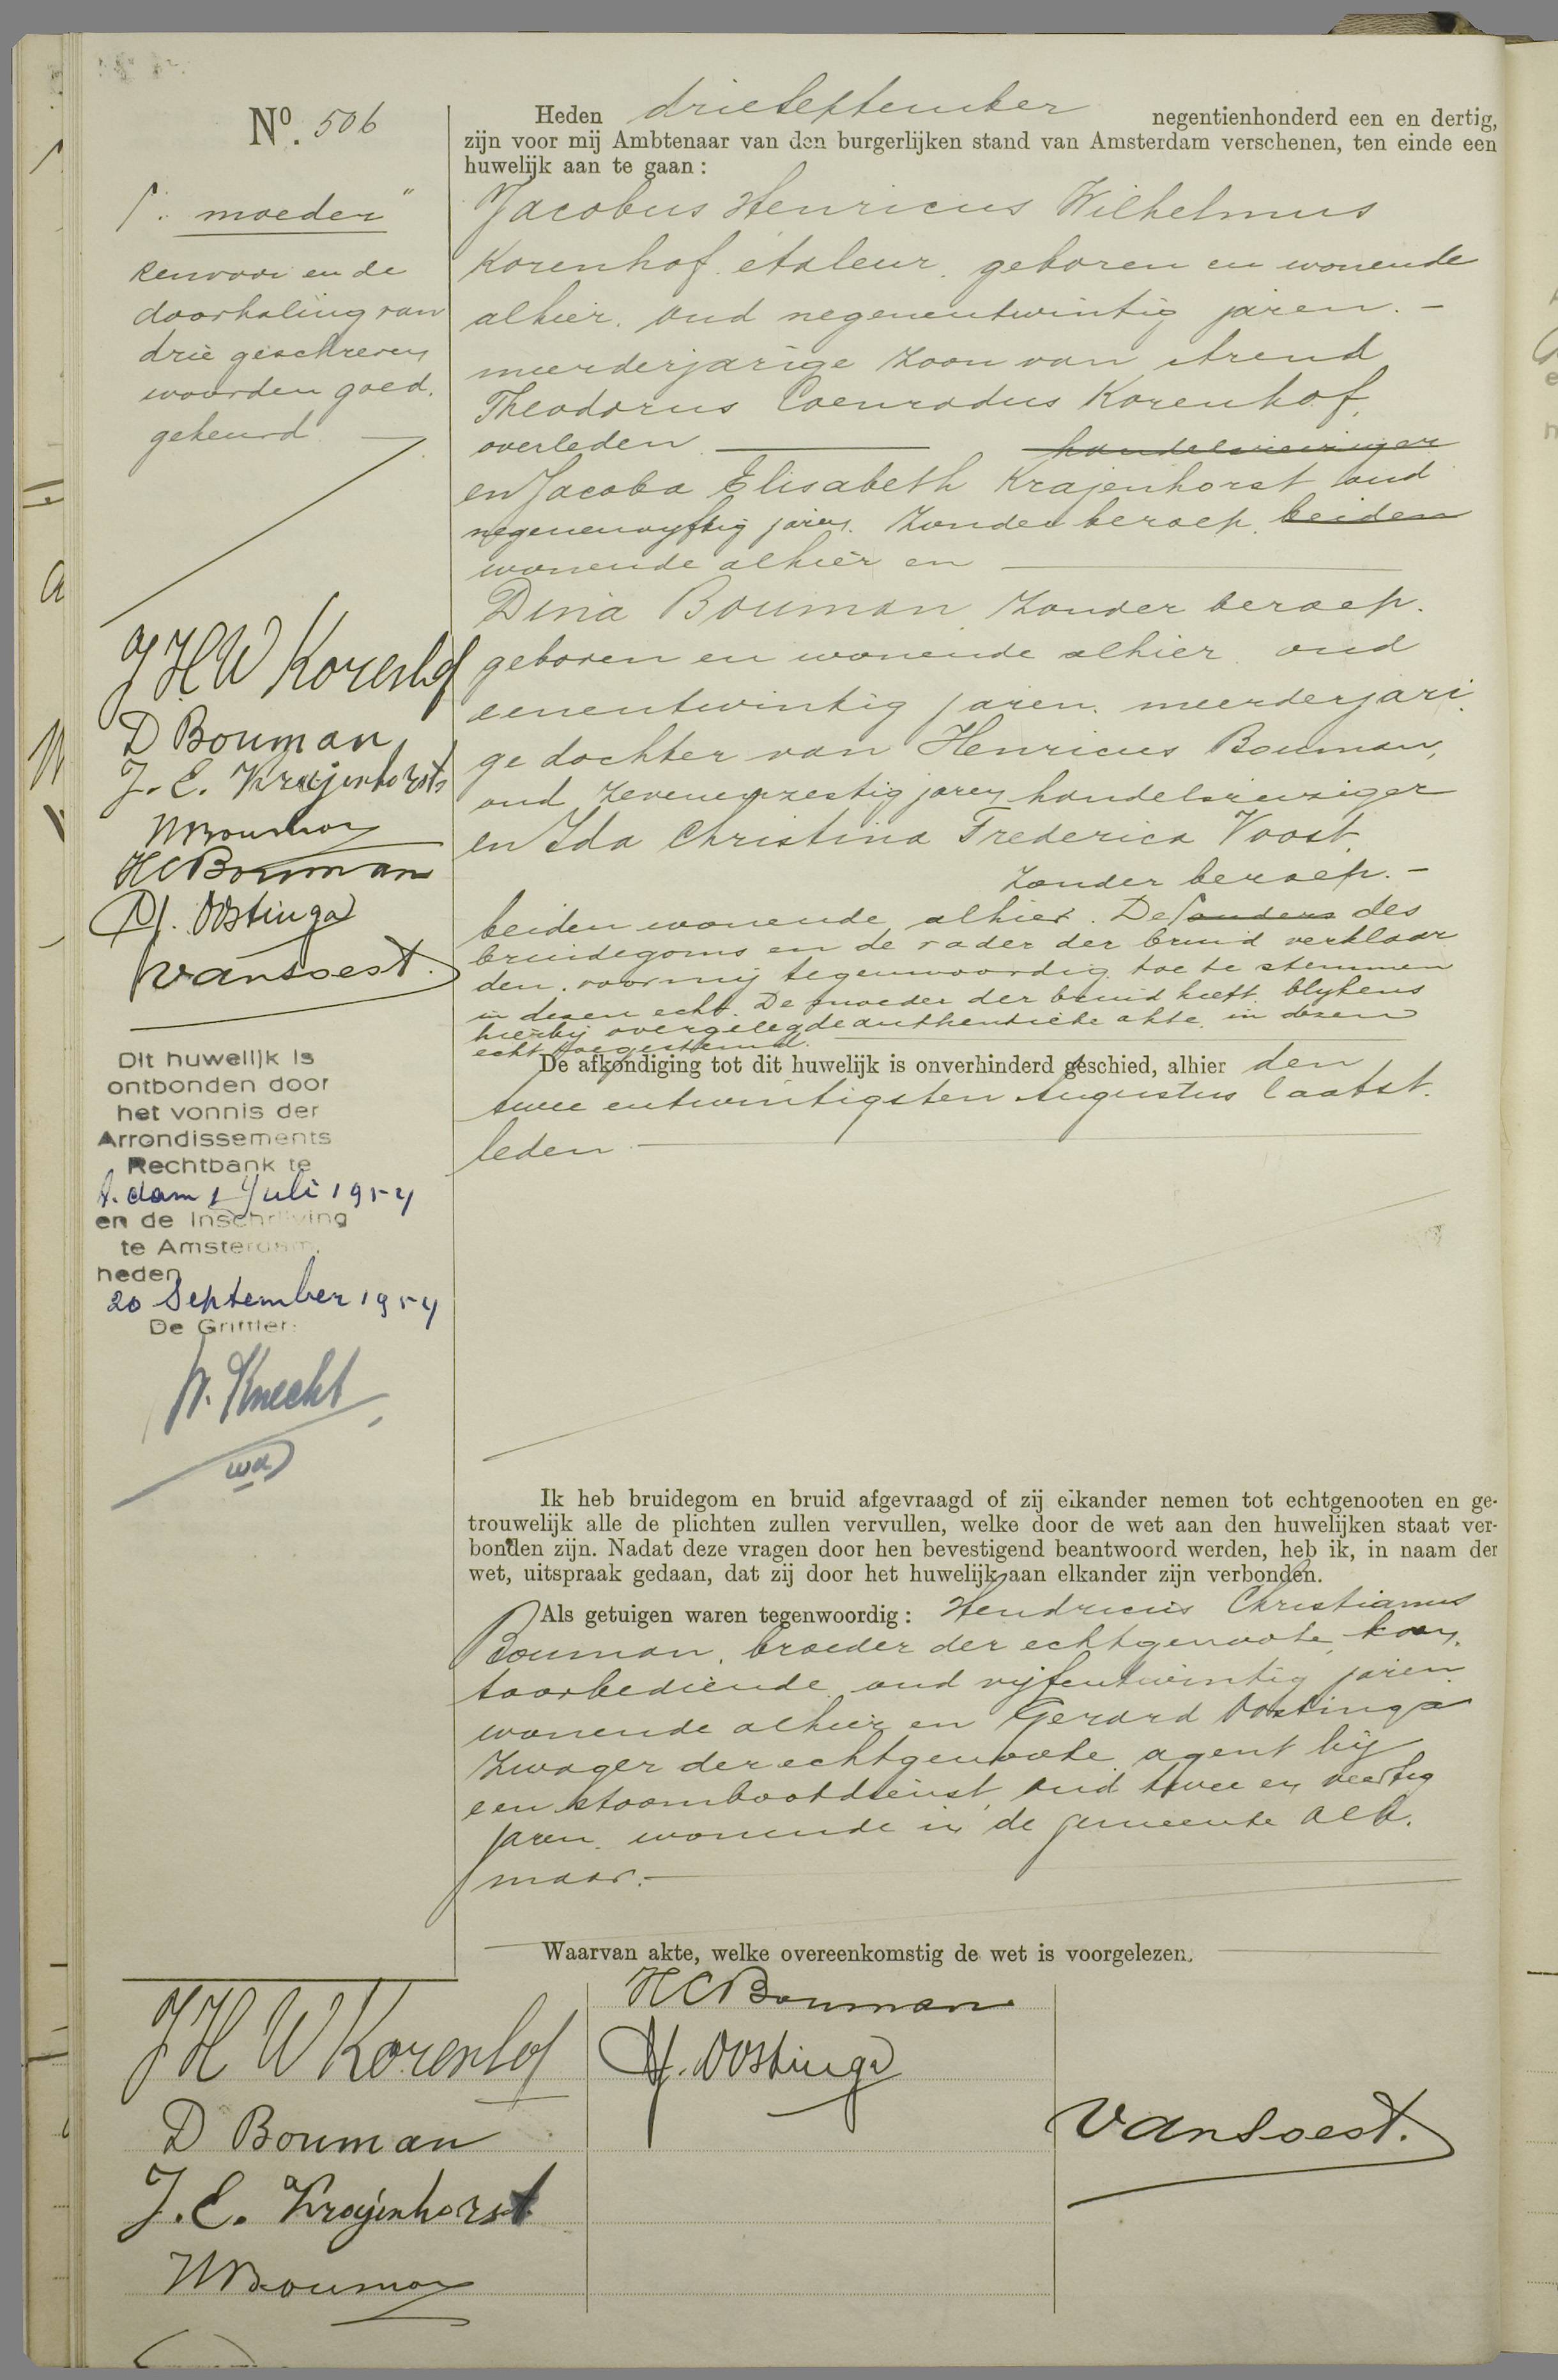 Nº. 506
Heden drie September negentienhonderd een en dertig,
zijn voor mij Ambtenaar van den burgerlijken stand van Amsterdam verschenen, ten einde een
huwelijk aan te gaan:
Jacobus Henricus Wilhelmus
Korenhof, étaleur, geboren en wonende
alhier, oud negenentwintig jaren. –
meerderjarige zoon van Arend
Theodorus Coenradus Korenhof,
overleden handelsreiziger
en Jacoba Elisabeth Krajenhorst oud
negenenvyftig jaren, zonder beroep, beiden
wonende alhier en
Dina Bouman, zonder beroep.
geboren en wonende alhier, oud
eenentwintig jaren, meerderjari
ge dochter van Henricus Bouman,
oud zevenenzestig jaren handelsreiziger
en Ida Christina Frederica Voost,
zonder beroep. –
beiden wonende alhier. De ouders des
bruidegoms en de vader der bruid verklaar
den, voor mij tegenwoordig, toe te stemmen
in dezen echt. De moeder der bruid heeft, blykens
hierbij overgelegde authentieke akte, in dezen
echt toegestemd.
De afkondiging tot dit huwelijk is onverhinderd geschied, alhier den
twee entwintigsten Augustus laatst.
leden
Ik heb bruidegom en bruid afgevraagd of zij elkander nemen tot echtgenooten en ge-
trouwelijk alle de plichten zullen vervullen, welke door de wet aan den huwelijken staat ver-
bonden zijn. Nadat deze vragen door hen bevestigend beantwoord werden, heb ik, in naam der
wet, uitspraak gedaan, dat zij door het huwelijk aan elkander zijn verbonden.
Als getuigen waren tegenwoordig: Hendricus Christianus
Bouman, broeder der echtgenoote, kan
toorbediende, oud vijfentwintig jaren
wonende alhier en Gerard Oostinga
zwager der echtgenoote, agent bij
een stoombootdienst, oud twee en veertig
jaren, wonende in de gemeente Alk.
maar. –
Waarvan akte, welke overeenkomstig de wet is voorgelezen.
„ moeder "
Renvooi en de
doorhaling van
drie geschreven
woorden goed.
gekeurd.
J H W Korenhof
D Bouman
J. E. Krajenhorst
HBouman
HCBouman
G. Oostinga
van Soest.
Dit huwelijk is
ontbonden door
het vonnis der
Arrondissements
Rechtbank te
A.dam 1 Juli 1954
en de Inschrijving
te Amsterdam,
heden
20 September 1954
De Griffier:
W. Knecht
wd
J H W Korenhof
D Bouman
J. E. Krajenhorst
HBouman
HCBouman
G. Oostinga
van Soest.